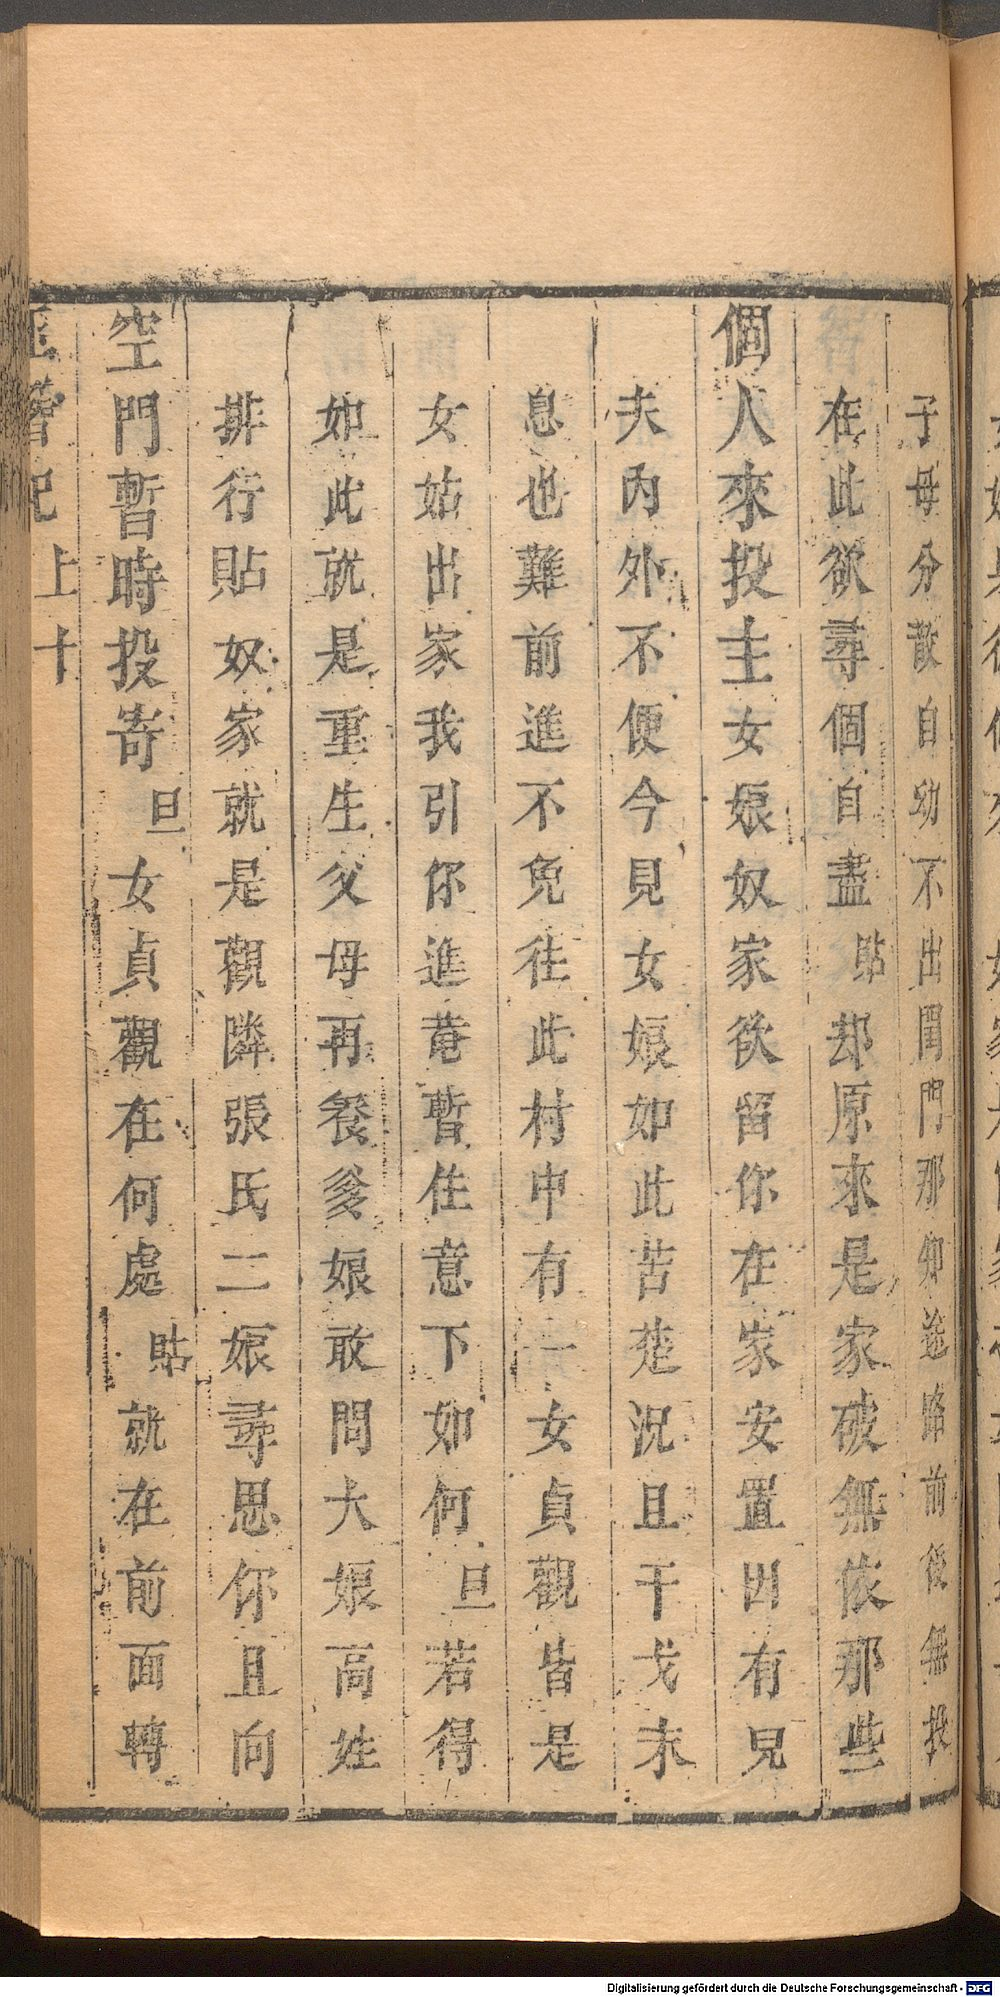 子母分散自幼不出閨門那知途路前後無投
在此欲尋個自盡貼却原來是家破無依那些
個人來投主女娘奴家欲留你在家安置因有兒
夫內外不便今見女娘如此苦楚況且干戈未
息也難前進不免往此村中有一女貞觀皆是
女姑出家我引你進菴暫住意下如何旦若得
如此就是重生父母再養爹娘敢問大娘高姓
排行貼奴家就是觀隣張氏二娘尋思你且向
空門暫時投寄旦女貞觀在何處貼就在前面轉
玉簪記上十
Digitalisierung gefördert durch die Deutsche Forschungsgemeinschaft - DFG